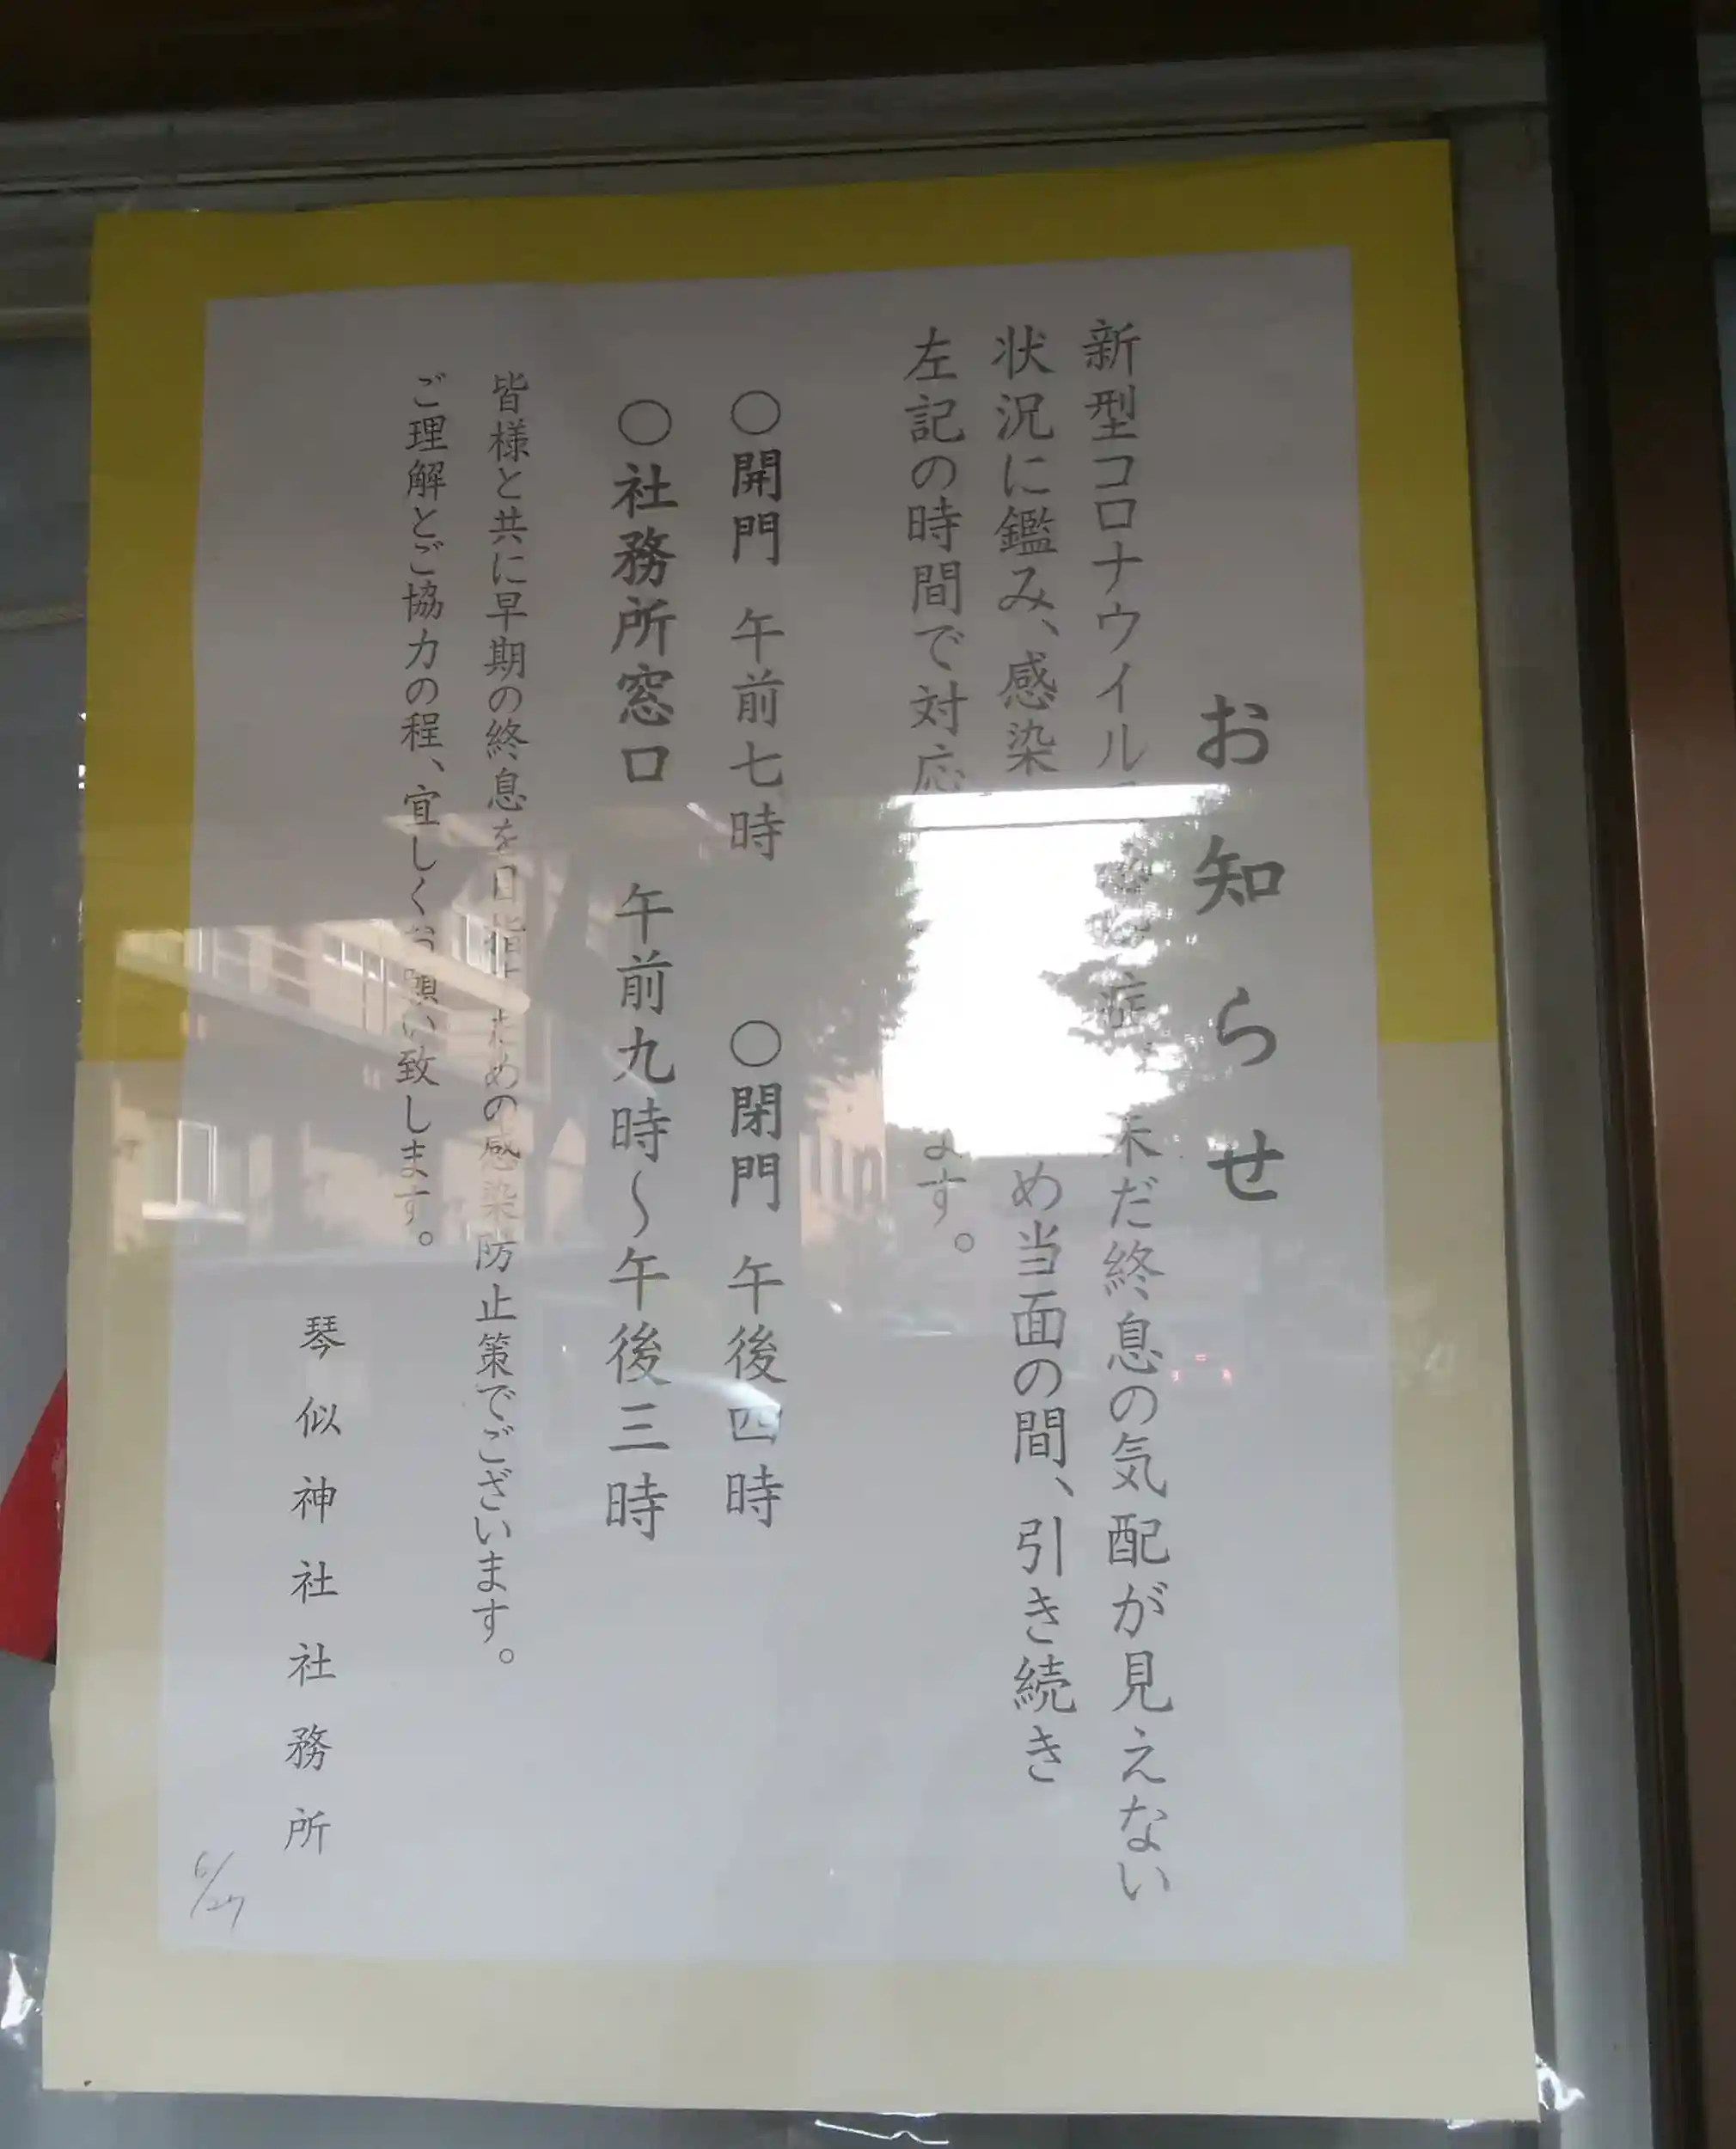 お知らせ
新型コロナウイルス感染症の未だ終息の気配が見えない
状況に鑑み、感染め当面の間、引き続き
左記の時間で対応ます。
〇開門 午前七時 〇閉門 午後四時
〇社務所窓口 午前九時～午後三時
皆様と共に早期の終息を目指すための感染防止策でございます。
ご理解とご協力の程、宜しくお願い致します。
琴似神社社務所
6/27